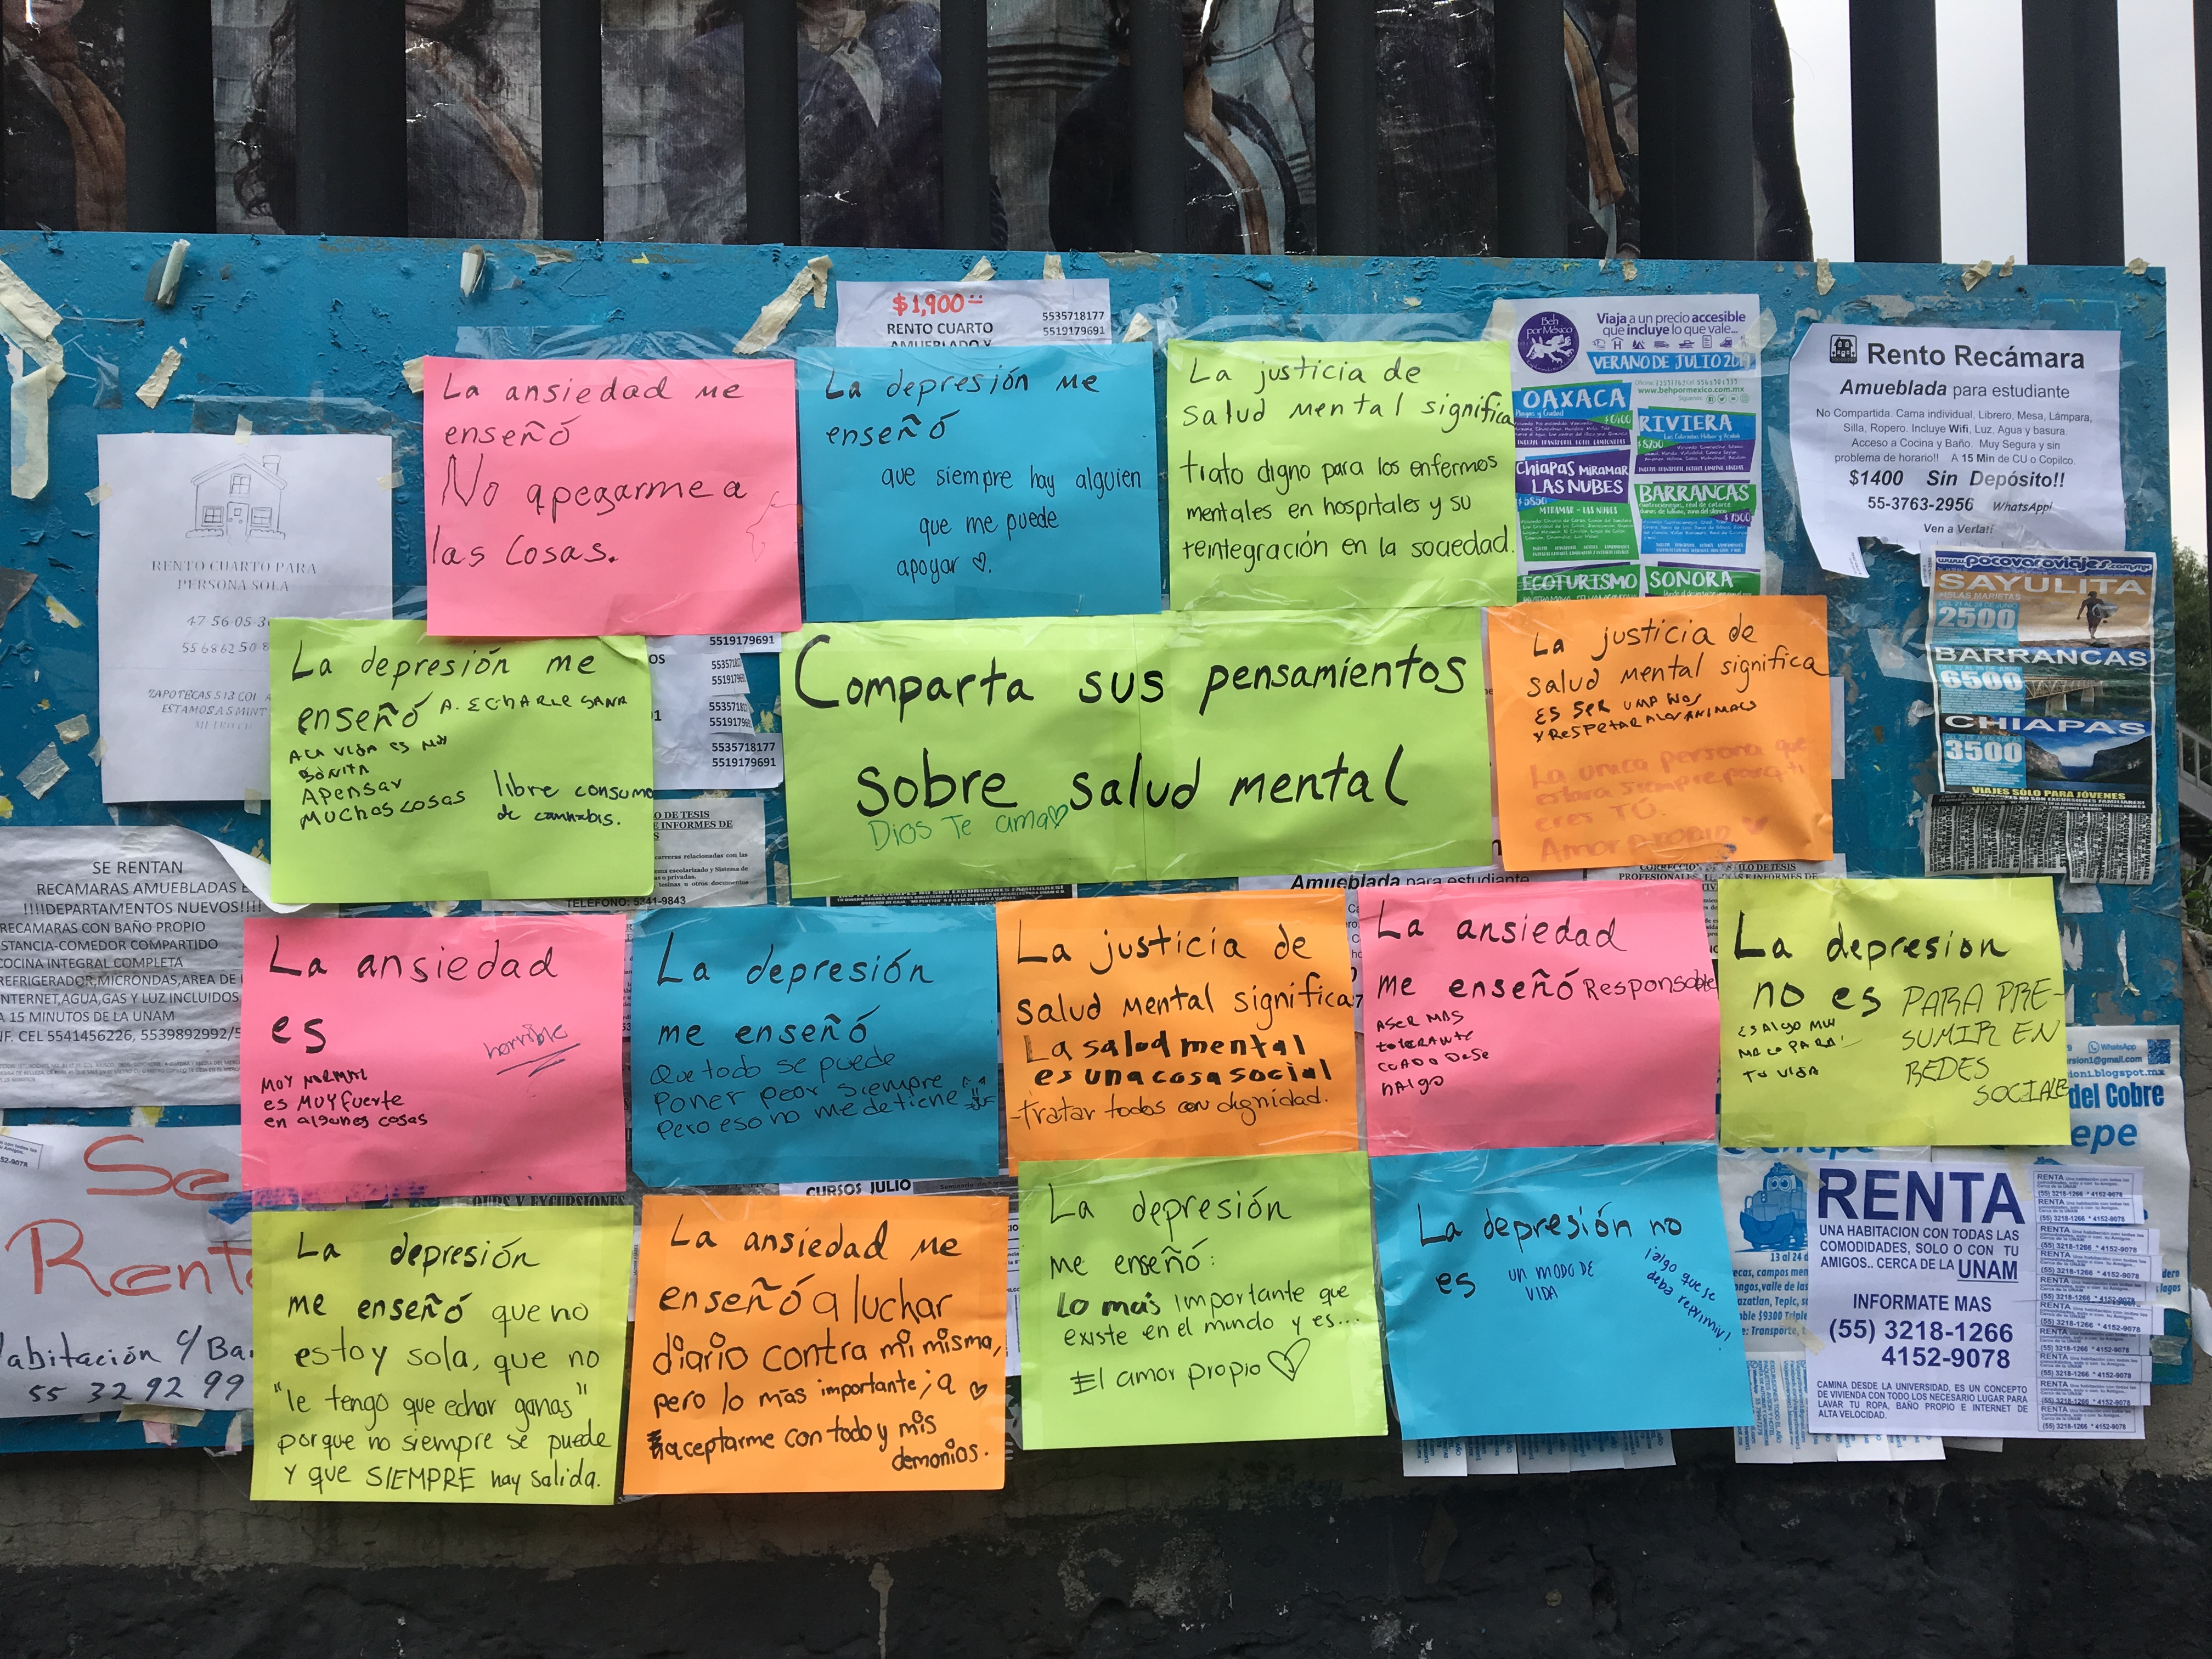 $1,900
RENTO CUARTO
AMUEBLADO Y
5535718177
5519179691
La ansiedad me
enseñó
No apegarme a
las cosas.
La depresión me
enseñó
que siempre hay alguien
que me puede
apoyar
La justicia de
salud mental significa
trato digno para los enfermos
mentales en hospitales y su
reintegración en la sociedad.
Beh
por México
Viaja a un precio accesible
que incluye lo que vale...
VERANO DE JULIO 2019
www.behpormexico.com.mx
OAXACA
Playas y Ciudad
$6400
RIVIERA
$8750
Chiapas MIRAMAR
LAS NUBES
$5850
MIRAMAR - LAS NUBES
BARRANCAS
$7500
ECOTURISMO
SONORA
Rento Recámara
Amueblada para estudiante
No Compartida. Cama individual, Librero, Mesa, Lámpara,
Silla, Ropero. Incluye Wifi, Luz, Agua y basura.
Acceso a Cocina y Baño. Muy Segura y sin
problema de horario!! A 15 Min de CU o Copilco.
$1400 Sin Depósito!!
55-3763-2956 WhatsApp!
Ven a Verla!!
www.pocovaroviajes.com.mx
SAYULITA
+ISLAS MARIETAS
2500
BARRANCAS
6500
CHIAPAS
3500
VIAJES SÓLO PARA JÓVENES
RENTO CUARTO PARA
PERSONA SOLA
47 56-05-3
556862508
ZAPOTECAS 513 COL A
ESTAMOS A 5 MINT
La depresión me
enseñó A. ECHARLE GANA
A LA VIDA ES MUY
BONITA
APENSAR
MUCHAS COSAS
libre consumo
de cannabis.
5519179691
5535718177
5519179691
5535718177
5519179691
5535718177
5519179691
Comparta sus pensamientos
sobre salud mental
Dios Te ama
La justicia de
salud mental significa
ES SER UMANOS
Y RESPETAR ALOS ANIMALES
La unica persona que
estara siempre para ti
eres TÚ.
Amor PROPIO
SE RENTAN
RECAMARAS AMUEBLADAS E
!!!!DEPARTAMENTOS NUEVOS!!!!
RECAMARAS CON BAÑO PROPIO
STANCIA-COMEDOR COMPARTIDO
COCINA INTEGRAL COMPLETA
REFRIGERADOR,MICRONDAS,AREA DE
NTERNET,AGUA,GAS Y LUZ INCLUIDOS
A 15 MINUTOS DE LA UNAM
NF. CEL 5541456226, 5539892992/5
O DE TESIS
E INFORMES DE
carreras relacionadas con las
TELEFONO: 5341-9843
Amueblada para estudiante
La ansiedad
es
MUY NORMAL
es MUY fuerte
en algunes cosas
horrible
La depresión
me enseñó
Que todo se puede
Poner peor siempre
Pero eso no me detiene
La justicia de
salud mental significa
La salud mental
es una cosa social
-tratar todos con dignidad.
La ansiedad
me enseñó Responsable
ASER MAS
tolerante
CUADO DESE
hAlgo
La depresion
no es PARA PRE-
SUMIR EN
REDES
SOCIALES
ES Algo MUY
MALO PARA
TU VIDA
WhatsApp
rsion1@gmail.com
ion1.blogspot.mx
del Cobre
epe
Se
Renta
abitación c/ Ba
55 32 92 99
OURS Y EXCURSIONES
CURSOS JULIO
La depresión
me enseñó que no
estoy sola, que no
"le tengo que echar ganas"
porque no siempre se puede
y que SIEMPRE hay salida.
La ansiedad me
enseñó a luchar
diario contra mi misma,
pero lo más importante; a
aceptarme con todo y mis
demonios.
La depresión
me enseñó:
Lo más importante que
existe en el mundo y es...
El amor propio
La depresión no
es UN MODO DE
VIDA
¡algo que se
deba reprimir!
13 al 24 d
RENTA
UNA HABITACION CON TODAS LAS
COMODIDADES, SOLO O CON TU
AMIGOS.. CERCA DE LA UNAM
INFORMATE MAS
(55) 3218-1266
4152-9078
CAMINA DESDE LA UNIVERSIDAD, ES UN CONCEPTO
DE VIVIENDA CON TODO LOS NECESARIO LUGAR PARA
LAVAR TU ROPA, BAÑO PROPIO E INTERNET DE
ALTA VELOCIDAD.